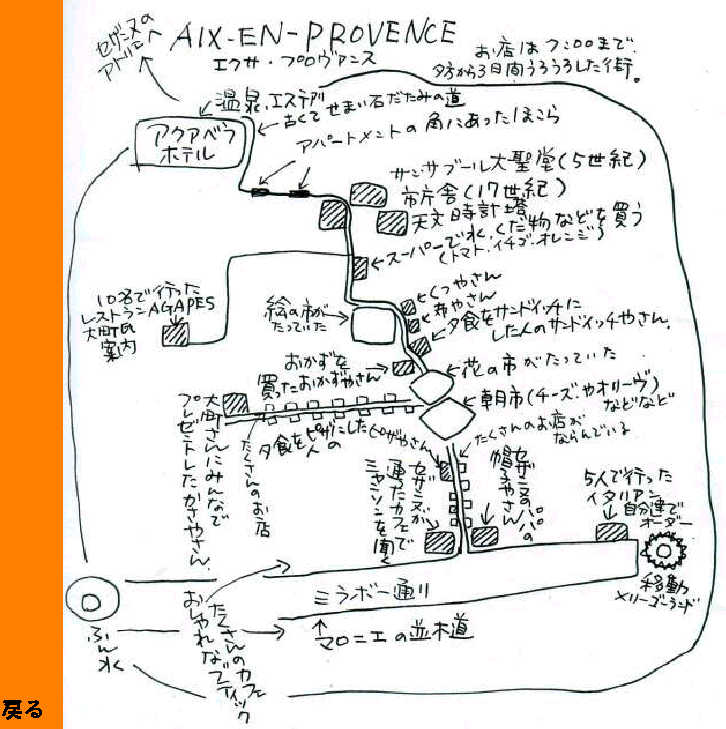 セザンヌの
アトリエへ
AIX-EN-PROVENCE
エクサ・プロヴァンス
お店は7:00まで。
夕方から3日間うろうろした街。
温泉、エステ
古くてせまい石だたみの道
アクアベラ
ホテル
アパートメントの角にあったほこら
サンサブール大聖堂(5世紀)
市庁舎(17世紀)
天文時計塔
スーパーで水、くだ物などを買う
(トマト・イチゴ・オレンジ)
10名で行った
レストランAGAPES
大町の
案内
絵の市が
たっていた
くつやさん
布やさん
夕食をサンドイッチに
した人のサンドイッチやさん
おかずを
買ったおかずやさん
花の市がたっていた
朝市(チーズやオリーヴ)
などなど
大町さんにみんなで
プレゼントしたかさやさん
たくさんのお店
夕食をピザにした
人の
ピザやさん
たくさんのお店が
ならんでいる
セザンヌが
通ったカフェで
シャンソンを聞く
セザンヌのパパの
帽子やさん
5人で行った
イタリアン
自分達で
オーダー
移動
メリーゴーランド
ミラボー通り
マロニエの並木道
ふん水
たくさんのカフェ
おしゃれなブティック
戻る